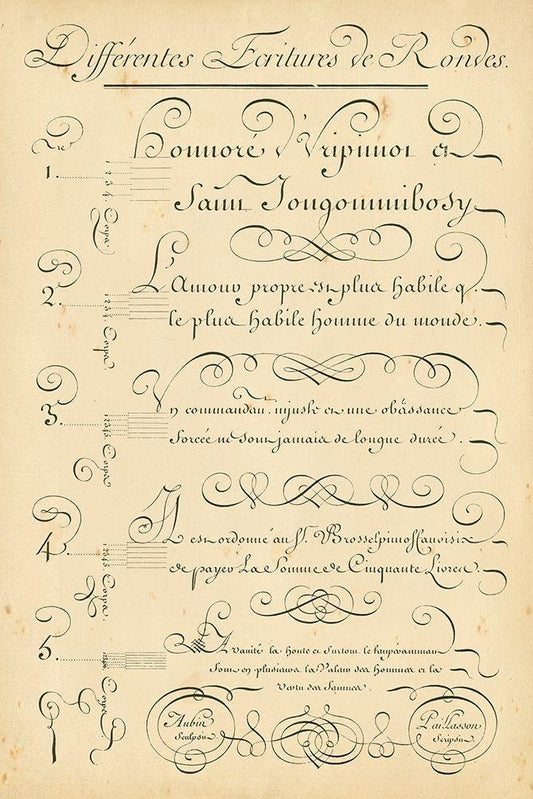 Différentes Ecritures de Rondes.
1.
Honnoré d'Vripinior et
Corps.
2.
L'Amour propre est plus habile q.
le plus habile homme du monde.
Corps.
3.
Un commandant injuste et une obéissance
forcée ne sont jamais de longue durée.
Corps.
4.
Il est ordonné au Sr.
de payer La Somme de Cinquante Livres.
Corps.
5.
La Vanité la honte et Surtout le tempérammant
Sont en plusieurs la Valeur des hommes et la
Vertu des femmes.
Corps.
Aubin
Sculpsit
Paillasson
Scripsit